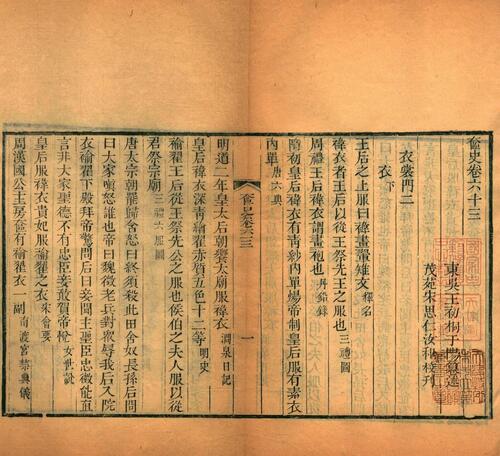 奩史卷六十三
東吳王初桐于陽纂述
茂苑朱思仁汝和校刊
衣裳門二
衣下
王后之上服曰褘畫翬雉文釋名
褘衣者王后以從王祭先王之服也三禮圖
周禮王后褘衣謂畫袍也丹鉛錄
隋初皇后褘衣有青紗內單煬帝制皇后服有素衣
內單唐六典
奩史卷六十三
一
明道二年皇太后朝饗太廟服褘衣涸泉日記
皇后褘衣深青繪翟赤質五色十二等明史
褕翟王后從王祭先公之服也侯伯之夫人服以從
君祭宗廟三禮六服圖
唐太宗朝罷歸含忿曰終須殺此田舍奴長孫后問
曰大家嗔怒誰也帝曰魏徵老兵對眾辱我后入院
衣褕翟下殿拜帝驚問后曰妾聞主聖臣忠徵能直
言非大家聖德不有忠臣妾敢賀帝悅女世說
皇后服褘衣貴妃服褕翟之衣宋會要
周漢國公主房奩有褕翟衣一副南渡宮禁典儀